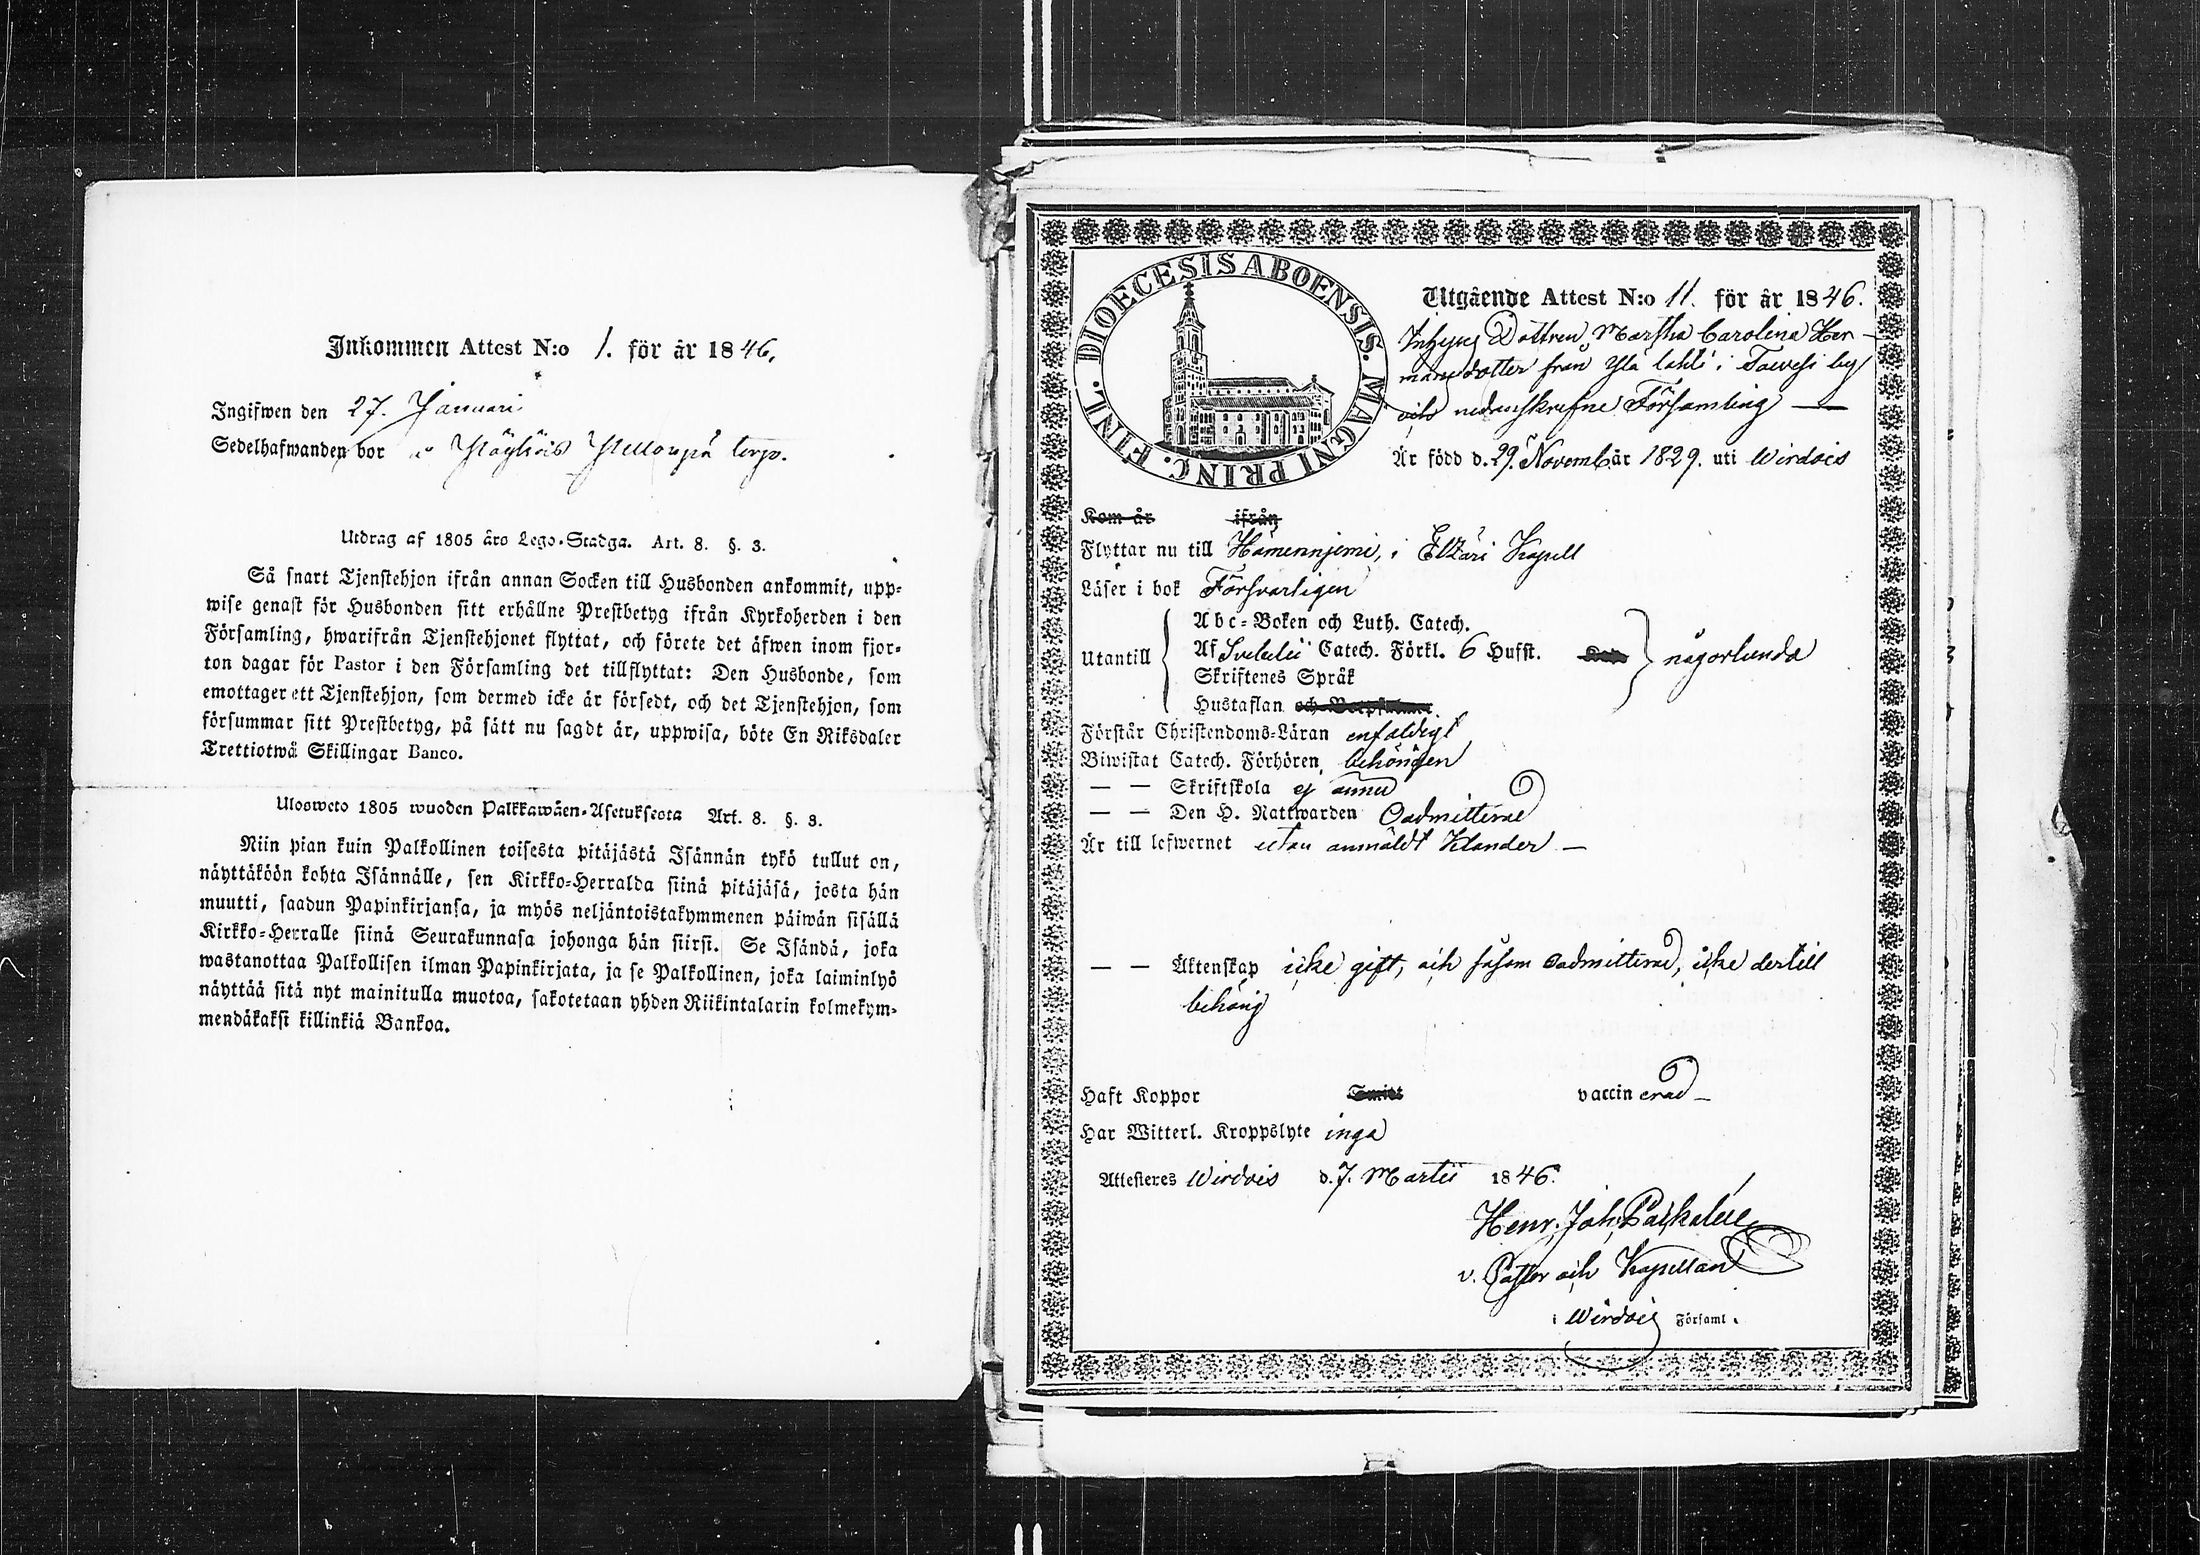 Inkommen Attest N:o 1. för år 1846.
Ingifwen den 27. Januari
Sedelhafwanden bor torp.
Utdrag af 1805 års Lego-Stadga. Art. 8. §. 3.
Så snart Tjenstehjon ifrån annan Socken till Husbonden ankommit, upp-
wise genast för Husbonden sitt erhållne Prestbetyg ifrån Kyrkoherden i den
Församling, hwarifrån Tjenstehjonet flyttat, och förete det äfwen inom fjor-
ton dagar för Pastor i den Församling det tillflyttat: Den Husbonde, som
emottager ett Tjenstehjon, som dermed icke är försedt, och det Tjenstehjon, som
försummar sitt Prestbetyg, på sätt nu sagdt är, uppwisa, böte En Riksdaler
Trettiotwå Skillingar Banco.
Ulosweto 1805 wuoden Palkkawäen-Asetuksesta Art. 8. §. 3.
Niin pian kuin Palkollinen toisesta pitäjästä Isännän tykö tullut on,
näyttäköön kohta Isännälle, sen Kirkko-Herralda siinä pitäjäsä, josta hän
muutti, saadun Papinkirjansa, ja myös neljäntoistakymmenen päiwän sisällä
Kirkko-Herralle siinä Seurakunnasa johonga hän siirsi. Se Isändä, joka
wastanottaa Palkollisen ilman Papinkirjata, ja se Palkollinen, joka laiminlyö
näyttää sitä nyt mainitulla muotoa, sakotetaan yhden Riikintalarin kolmekym-
mendäkaksi killinkiä Bankoa.
DIOECESIS ABOENSIS. MAGNI PRINC. FINL.
Utgående Attest N:o 11. för år 1846.
Dottren Martha Carolina Her-
mansdotter från Ylä lahti i Toivesi by
och nedanskrefne Församling
Är född d. 29. Novemb. år 1829. uti Wirdois
Kom år ifrån
Flyttar nu till Hämennjemi, i Etzäri Kapell
Läser i bok Försvarligen
Abc-Boken och Luth. Catech.
Utantill Af Svebelii Catech. Förkl. 6 Hufst. någorlunda
Skriftenes Språk
Hustaflan
Förstår Christendoms-Läran enfaldigt
Biwistat Catech. Förhören behörigen
— — Skriftskola ej ännu
— — Den H. Nattwarden Oadmitterad
Är till lefwernet utan anmäldt Klander —
— — Äktenskap icke gift, och såsom oadmitterad, icke dertill
behörig
Haft Koppor vaccinerad —
Har Witterl. Kroppslyte inga
Attesteres Wirdois d. 7. Martii 1846.
Henr. Joh.
v. Pastor och Kapellan
i Wirdois Församl.